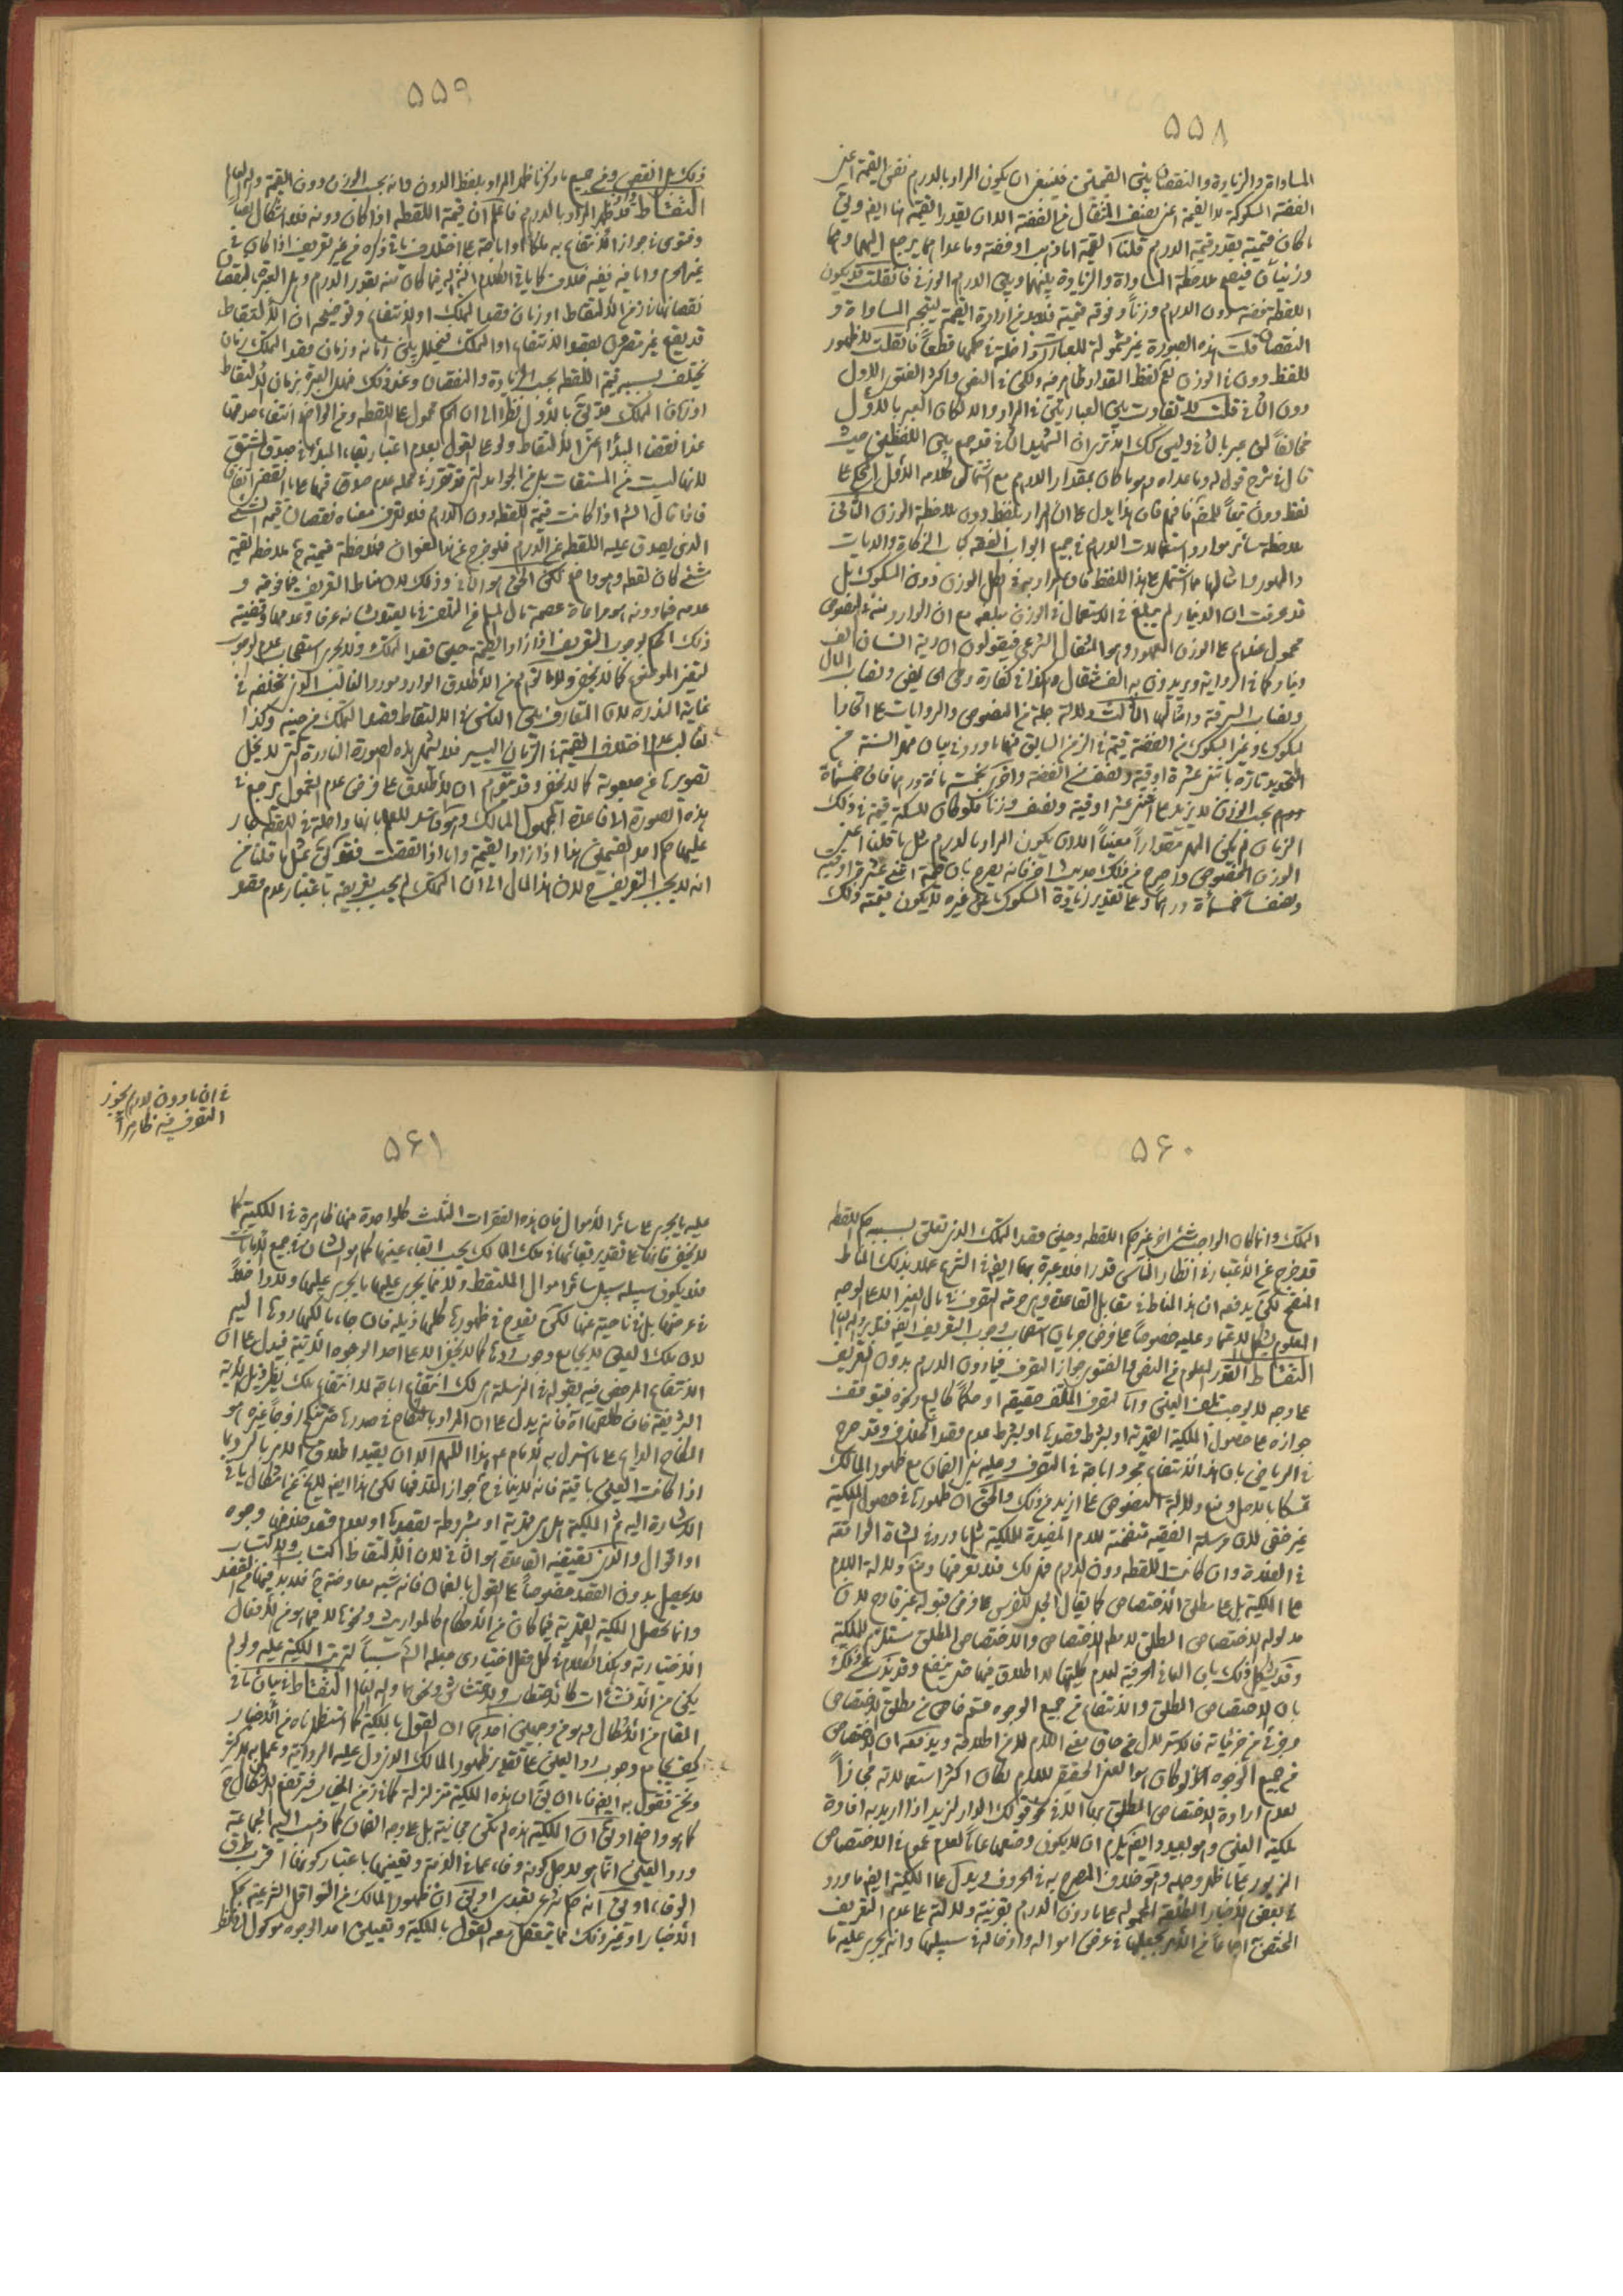 ۵۵۸
المساواة والزيادة والنقصان بين القيمتين فينبغى ان يكون المراد بالدرهم نفس القيمة اعنى
الفضة المسكوكة لا القيمة اعنى نصف المثقال من الفضة الا ان يقدر القيمة
ما كان قيمته بقدر قيمة الدرهم قلنا القيمة اما ذهب او فضة وما عداهما يرجع اليهما وهما
وزنيان فيصح ملاحظة المساواة والزيادة بينهما وبين الدرهم الوزنى فان قلت قد يكون
اللقطة فضة بدون الدرهم وزنا وفوقه قيمة فلا بد من ارادة القيمة ليتجه المساواة و
النقصان قلت هذه الصورة غير مشمولة للعبارات داخلة فى حكمها قطعا فان قلت لا ظهور
للفظ دون فى الوزن نعم لفظ المقدار ظاهر فيه ولكن فى النص واكثر الفتوى الاول
دون الثانى قلت لا تفاوت بين العبارتين فى المراد والا لكان المعبر بالاول
مخالفا لمن عبر بالثانى وليس كك الا ترى ان الشهيد الثانى قد جمع بين اللفظين حيث
قال فى شرح قوله وما عداه وهو ما كان بمقدار الدرهم مع اشتمال كلامه الاول على
لفظ دون تبعا للمص فافهم فان هذا يدل على ان المراد بلفظ دون ملاحظة الوزن الثانى
ملاحظة سائر موارد استعمالات الدرهم فى جميع ابواب الفقه كباب الزكاة والديات
والمهور وامثالها مما اشتمل على هذا اللفظ فان المراد به فى الكل الوزن دون المسكوك بل
قد عرفت ان الدينار لم يبلغ فى الاستعمال فى الوزن مبلغه مع ان الوارد منه فى النصوص
محمول عندهم على الوزن المعهود وهو المثقال الشرعى فيقولون ان دية انسان الف
دينار كما فى الرواية ويريدون به الف مثقال وهكذا فى كفارة وطى الحايض ونصاب المال
ونصاب السرقة وامثالها الثالث دلالة جملة من النصوص والروايات على اتحاد
المسكوك وغير المسكوك من الفضة قيمة فى الزمن السابق منها ما ورد فى بيان مهر السنة من
التحديد تارة باثنى عشرة اوقية ونصف من الفضة واخرى بخمسمائة درهم فان خمسمائة
درهم بحسب الوزن لا يزيد على اثنى عشر اوقية ونصف وزنا فلو كان للسكة قيمة فى ذلك
الزمان لم يكن المهر مقدارا معينا الا ان يكون المراد بالدرهم مثل ما قلنا اعنى
الوزن المخصوص واصرح من ذلك حديث اخر فانه يصرح بان قيمة اثنى عشر اوقية
ونصفا خمسمأة درهما وعلى تقدير زيادة المسكوك على غيره لا يكون قيمته ذلك
۵۵۹
ذلك بل انقص وفى جميع ما ذكرنا ظهر المراد بلفظ الدون وانه بحسب الوزن دون القيمة والله العالم
التقاط قد ظهر المراد بالدرهم فاعلم ان قيمة اللقطة اذا كان دونه فلا اشكال نصا
وفتوى فى جواز الانتفاع به ملكا او اباحة على اختلاف ياتى ذكره من غير تعريف اذا كان فى
غير الحرم واما فيه ففيه خلاف كما ياتى الكلام انش فيما كان منه بقدر الدرهم وهل العبرة بنقصان
نقصانها زمن الالتقاط او زمان قصد التملك او الانتفاع وتوضيحه ان الالتقاط
قد يقع غير مقرون بقصد الانتفاع او التملك فيتخلل بين زمانه وزمان قصد التملك زمان
يختلف بسببه قيمة اللقطة بحسب الزيادة والنقصان وعند ذلك فهل العبرة بزمان الالتقاط
او زمان التملك قد يق بالاول نظرا الى ان الحكم محمول على اللقطة ومن الواضح انتفاء صدقها
عند انقضاء المبدأ اعنى الالتقاط ولو على القول بعدم اعتبار بقاء المبدأ فى صدق المشتق
لانها ليست من المشتقات بل من الجوامد التى قد تقرر فى محله عدم صدقها على ما انقضى اتفاقا
فاذا قال الش اذا كانت قيمة اللقطة دون الدرهم فلا تعرف معناه نقصان قيمة الشئ
الذى يصدق عليه اللقطة عن الدرهم فلو خرج عن هذا العنوان فملاحظة قيمته ح ملاحظة لقيمة
شئ كان لقطة وهو واضح لكن الحق هو الثانى وذلك لان مناط التعريف فيما فوقه و
عدمه فيما دونه هو مراعاة عصمة مال المسلم من التلف فيما يعتد بشانه عرفا وعدمها وقضية
ذلك الحكم بوجوب التعريف اذا زاد القيمة حين قصد التملك ولا يجرى استصحاب عدم الوجوب
لتغير الموضوع كما لا يخفى ولا ما يتوهم من الاطلاق الوارد مورد الغالب الذى تخلفه فى
غاية الندرة لان المتعارف بين الناس فى الالتقاط قصد التملك من حينه وكذا
الغالب عدم اختلاف القيمة فى الزمان اليسير فلا يشمل هذه الصورة النادرة التى لا يخلو
تصويرها عن صعوبة كما لا يخفى وقد يتوهم ان الاطلاق على فرض عدم الشمول يرجع فى
هذه الصورة الى قاعدة مجهول المالك وهو فاسد للعلم بانها داخلة فى اللقطة جار
عليها حكم احد القسمين هذا اذا زاد القيمة واما اذا انقصت فقد يق بمثل ما قلنا من
انه لا يجب التعريف ح لان هذا المال الى ان التملك لم يجب تعريفه باعتبار عدم قصد
۵۶۰
التملك وانما كان الواجب شئ اخر غير حكم اللقطة وحين قصد التملك الذى تعلق بسببه حكم اللقطة
قد خرج عن الاعتبار فى انظار الناس قدرا فلا عبرة بها ايض فى الشرع عملا بذلك المناط
المنقح لكن يدفعه ان هذا المناط فى مقابل القاعدة وهى حرمة التصرف فى مال الغير الا على الوجه
المعلوم يشكل الاعتماد عليه خصوصا على فرض جريان استصحاب وجوب التعريف ايض فتدبر والله العالم
التقاط القدر المعلوم من النص والفتوى جواز التصرف فيما دون الدرهم بدون تعريف
على وجه لا يوجب تلف العين واما التصرف المتلف حقيقة او حكما كالبيع ونحوه فيتوقف
جوازه على حصول الملكية القهرية او بشرط قصدها او بشرط عدم قصد الخلاف وقد صرح
فى الرياض بان هذا الانتفاع مجرد اباحة فى التصرف وعليه يتم الضمان مع ظهور المالك
تمسكا بالاصل ومنع دلالة النصوص على ازيد من ذلك والحق ان ظهورها فى حصول الملكية
غير خفى لان مرسلة الفقيه متضمنة للام المفيدة للملكية مثل ما ورد فى الشاة الواقعة
فى الفلاة وان كانت اللقطة دون الدرهم فهى لك فلا تعرفها ومنع دلالة اللام
على الملكية بل على مطلق الاختصاص كما يقال الجل للفرس على فرض قبوله غير قادح لان
مدلوله الاختصاص المطلق لا مطلق الاختصاص والاختصاص المطلق يستلزم الملكية
وقد يشكل ذلك بان المعانى الحرفية لعدم كليتها لا اطلاق فيها حتى ينفع وقد يذب عن ذلك
بان الاختصاص المطلق والانتفاع من جميع الوجوه قسم خاص من مطلق الاختصاص
وجزئى من جزئياته
من جميع الوجوه لو كان هو المعنى الحقيقى للام لكان اكثر استعمالاته مجازا
لعدم ارادة الاختصاص المطلق بها الا فى نحو قولك الدار لزيد اذا اريد به افادة
ملكية العين وهو بعيد وايض يلزم ان لا يكون وضعها عاما لعدم عموم فى الاختصاص
المزبور
فى بعض الاخبار المطلقة المحمولة على ما دون الدرهم بقرينة دلالته على عدم التعريف
المختص اجماعا من الامر بجعلها فى عرض امواله وادخاله فى سبيلها وانه يجرى عليه ما
فى ان ما دون الدرهم يجوز
التصرف فيه ظاهرا
۵۶۱
عليه ما يجرى على سائر الاموال فان هذه الفقرات الثلث كل واحدة منها ظاهرة فى الملكية كما
لا يخفى فانها على تقدير بقائها فى ملك المالك يجب ابقاء عينها كما هو الشان فى جميع الامانات
فلا يكون سبيله سبيل سائر اموال الملتقط ولا مما يجرى عليها ما يجرى عليها ولا داخلا
فى عرضها بل فى ناحية عنها لكن يقدح فى ظهورها كلها ذيله فان جاء مالكها ردها اليه
لان ملك العين لا يجامع وجوب ردها كما لا يخفى الا على احد الوجوه الاتية فيدل على ان
الانتفاع المرخص فيه بقوله فى المرسلة هى لك انتفاع اباحة لا انتفاع ملك نظير ذيل الاية
الشريفة فان طلقها اه فانه يدل على ان المراد بالنكاح فى صدرها حتى تنكح زوجا غيره هو
النكاح الدائم على ما استدل به الامام ع على هذا اللهم الا ان يقيد اطلاق الامر بالرد بما
اذا كانت العين باقية فانه لا ينافى ح جواز التصرف فيها لكن هذا ايض لا يخ عن اشكال ياتى
الاشارة اليه ثم الملكية هل هى قهرية او مشروطة بقصدها او بعدم قصد خلافه وجوه
او اقوال والذى يقتضيه القاعدة هو الثانى لان الالتقاط اكتساب والاكتساب
لا يحصل بدون القصد خصوصا على القول بالضمان فانه شبه معاوضة ح فلا بد فيها من القصد
وانما يحصل الملكية القهرية فيما كان من الاحكام كالمواريث ونحوها لا مما هو من الافعال
الاختيارية وهكذا الكلام فى كل فعل اختيارى جعله الش سببا لترتب الملكية عليه ولو لم
يكن من الانشاءات كالاحتطاب والاحتشاش ونحوها والله العالم التقاط فى بيان ما فى
المقام من الاشكال وهو من وجهين احدهما ان القول بالملكية كما استظهرناه من الاخبار
كيف يجامع وجوب رد العين على تقدير ظهور المالك الذى دل عليه الرواية وعمل به الاكثر
ونحن نقول به ايض فاما ان يق ان هذه الملكية متزلزلة كما فى زمن الخيار فيرتفع الاشكال ح
كما هو واضح او يق ان الملكية هذه لم تكن مجانية بل على وجه الضمان كما ذهب اليه الجماعة
ورد العين انما هو لاجل كونه وفاء عما فى الذمة وتعينها باعتبار كونها اقرب طرق
الوفاء او يق انه حكم شرعى تعبدى او يق ان ظهور المالك من النواقل الشرعية بحكم
الاخبار او غير ذلك مما يتعقل معه القول بالملكية وتعيين احد الوجوه موكول الى نظر